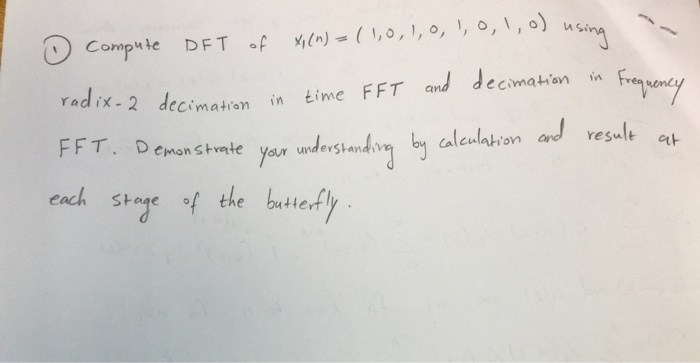 ① Compute DFT of x₁(n) = (1,0,1,0,1,0,1,0) using
radix-2 decimation in time FFT and decimation in Frequency
FFT. Demonstrate your understanding by calculation and result at
each stage of the butterfly.